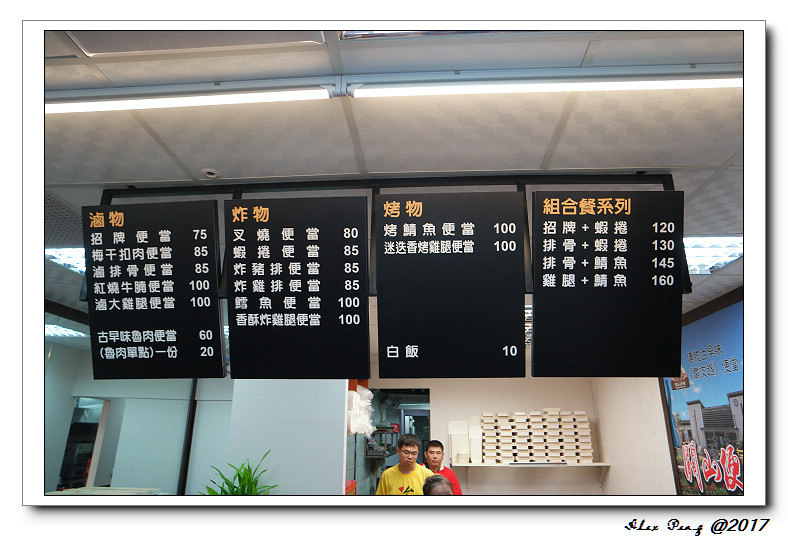 滷物
招牌便當 75
梅干扣肉便當 85
滷排骨便當 85
紅燒牛腩便當 100
滷大雞腿便當 100
古早味魯肉便當 60
(魯肉單點)一份 20
炸物
叉燒便當 80
蝦捲便當 85
炸豬排便當 85
炸雞排便當 85
鱈魚便當 100
香酥炸雞腿便當 100
烤物
烤鯖魚便當 100
迷迭香烤雞腿便當 100
白飯 10
組合餐系列
招牌+蝦捲 120
排骨+蝦捲 130
排骨+鯖魚 145
雞腿+鯖魚 160
古早味
關山便
Alex Peng @2017